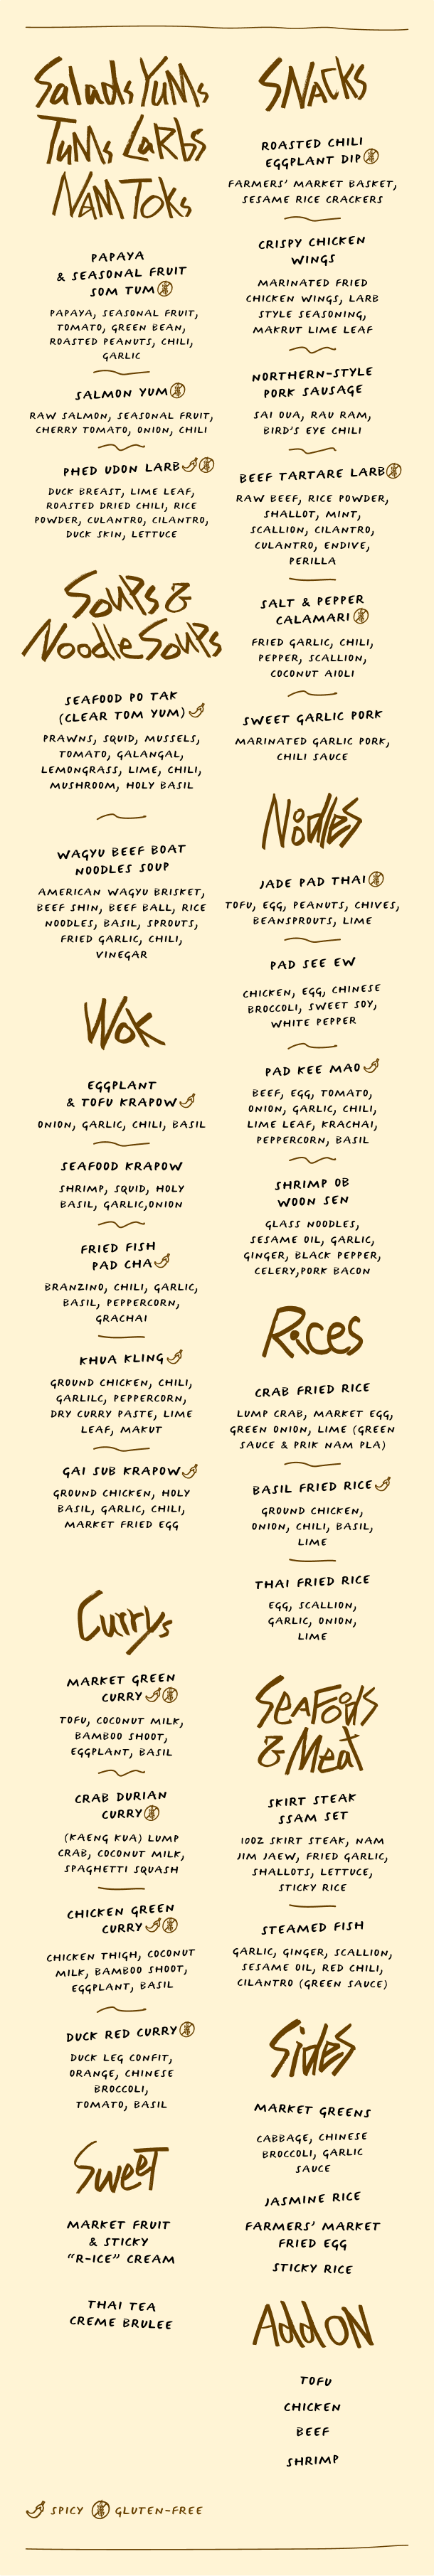 Salads Yums
Tums Larbs
Nam Toks
PAPAYA
& SEASONAL FRUIT
SOM TUM
PAPAYA, SEASONAL FRUIT,
TOMATO, GREEN BEAN,
ROASTED PEANUTS, CHILI,
GARLIC
SALMON YUM
RAW SALMON, SEASONAL FRUIT,
CHERRY TOMATO, ONION, CHILI
PHED UDON LARB
DUCK BREAST, LIME LEAF,
ROASTED DRIED CHILI, RICE
POWDER, CULANTRO, CILANTRO,
DUCK SKIN, LETTUCE
Soups &
Noodle Soups
SEAFOOD PO TAK
(CLEAR TOM YUM)
PRAWNS, SQUID, MUSSELS,
TOMATO, GALANGAL,
LEMONGRASS, LIME, CHILI,
MUSHROOM, HOLY BASIL
WAGYU BEEF BOAT
NOODLES SOUP
AMERICAN WAGYU BRISKET,
BEEF SHIN, BEEF BALL, RICE
NOODLES, BASIL, SPROUTS,
FRIED GARLIC, CHILI,
VINEGAR
Wok
EGGPLANT
& TOFU KRAPOW
ONION, GARLIC, CHILI, BASIL
SEAFOOD KRAPOW
SHRIMP, SQUID, HOLY
BASIL, GARLIC,ONION
FRIED FISH
PAD CHA
BRANZINO, CHILI, GARLIC,
BASIL, PEPPERCORN,
GRACHAI
KHUA KLING
GROUND CHICKEN, CHILI,
GARLILC, PEPPERCORN,
DRY CURRY PASTE, LIME
LEAF, MAKUT
GAI SUB KRAPOW
GROUND CHICKEN, HOLY
BASIL, GARLIC, CHILI,
MARKET FRIED EGG
Currys
MARKET GREEN
CURRY
TOFU, COCONUT MILK,
BAMBOO SHOOT,
EGGPLANT, BASIL
CRAB DURIAN
CURRY
(KAENG KUA) LUMP
CRAB, COCONUT MILK,
SPAGHETTI SQUASH
CHICKEN GREEN
CURRY
CHICKEN THIGH, COCONUT
MILK, BAMBOO SHOOT,
EGGPLANT, BASIL
DUCK RED CURRY
DUCK LEG CONFIT,
ORANGE, CHINESE
BROCCOLI,
TOMATO, BASIL
Sweet
MARKET FRUIT
& STICKY
"R-ICE" CREAM
THAI TEA
CREME BRULEE
Snacks
ROASTED CHILI
EGGPLANT DIP
FARMERS' MARKET BASKET,
SESAME RICE CRACKERS
CRISPY CHICKEN
WINGS
MARINATED FRIED
CHICKEN WINGS, LARB
STYLE SEASONING,
MAKRUT LIME LEAF
NORTHERN-STYLE
PORK SAUSAGE
SAI OUA, RAU RAM,
BIRD'S EYE CHILI
BEEF TARTARE LARB
RAW BEEF, RICE POWDER,
SHALLOT, MINT,
SCALLION, CILANTRO,
CULANTRO, ENDIVE,
PERILLA
SALT & PEPPER
CALAMARI
FRIED GARLIC, CHILI,
PEPPER, SCALLION,
COCONUT AIOLI
SWEET GARLIC PORK
MARINATED GARLIC PORK,
CHILI SAUCE
Noodles
JADE PAD THAI
TOFU, EGG, PEANUTS, CHIVES,
BEANSPROUTS, LIME
PAD SEE EW
CHICKEN, EGG, CHINESE
BROCCOLI, SWEET SOY,
WHITE PEPPER
PAD KEE MAO
BEEF, EGG, TOMATO,
ONION, GARLIC, CHILI,
LIME LEAF, KRACHAI,
PEPPERCORN, BASIL
SHRIMP OB
WOON SEN
GLASS NOODLES,
SESAME OIL, GARLIC,
GINGER, BLACK PEPPER,
CELERY,PORK BACON
Rices
CRAB FRIED RICE
LUMP CRAB, MARKET EGG,
GREEN ONION, LIME (GREEN
SAUCE & PRIK NAM PLA)
BASIL FRIED RICE
GROUND CHICKEN,
ONION, CHILI, BASIL,
LIME
THAI FRIED RICE
EGG, SCALLION,
GARLIC, ONION,
LIME
Seafoods
& Meat
SKIRT STEAK
SSAM SET
10OZ SKIRT STEAK, NAM
JIM JAEW, FRIED GARLIC,
SHALLOTS, LETTUCE,
STICKY RICE
STEAMED FISH
GARLIC, GINGER, SCALLION,
SESAME OIL, RED CHILI,
CILANTRO (GREEN SAUCE)
Sides
MARKET GREENS
CABBAGE, CHINESE
BROCCOLI, GARLIC
SAUCE
JASMINE RICE
FARMERS' MARKET
FRIED EGG
STICKY RICE
Add ON
TOFU
CHICKEN
BEEF
SHRIMP
SPICY GLUTEN-FREE